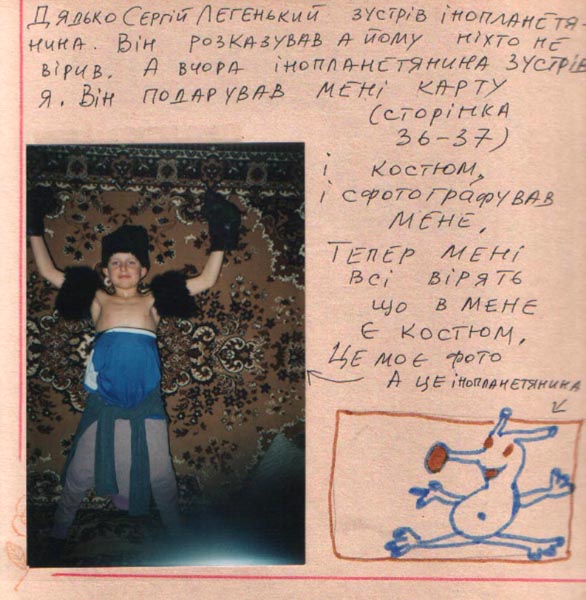 Дядько Сергій Легенький зустрів інопланетя-
нина. Він розказував а йому ніхто не
вірив. А вчора інопланетянина зустрів
я. Він подарував мені карту
(сторінка
36-37)
і костюм,
і сфотографував
мене.
Тепер мені
всі вірять
що в мене
є костюм.
Це моє фото
А це інопланетянина